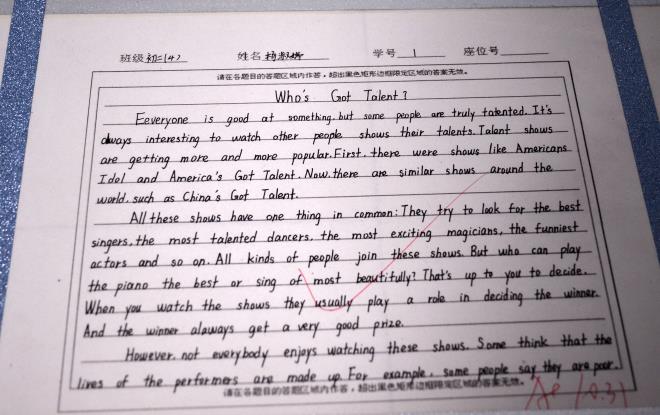 班级 初二(4) 姓名 杨淑婷 学号 1 座位号
请在各题目的答题区域内作答，超出黑色矩形边框限定区域的答案无效。
Who's Got Talent?
Eeveryone is good at something.but some people are truly tatented. It's
always interesting to watch other people shows their talents. Talant shows
are getting more and more popular. First. there were shows like Americans
Idol and America's Got Talent. Now. there are similar shows around the
world. such as China's Got Talent.
All these shows have one thing in common: They try to look for the best
singers. the most talented dancers. the most exciting magicians, the funniest
actors and so on. All kinds of people join these shows. But who can play
the piano the best or sing of most beautifully? That's up to you to decide.
When you watch the shows they usually play a role in deciding the winner.
And the winner alaways get a very good prize.
However. not everybody enjoys watching these shows. Some think that the
lives of the performers are made up. For example. some people say they are poor.
请在各题目的答题区域内作答，超出黑色矩形边框限定区域的答案无效。
10.31